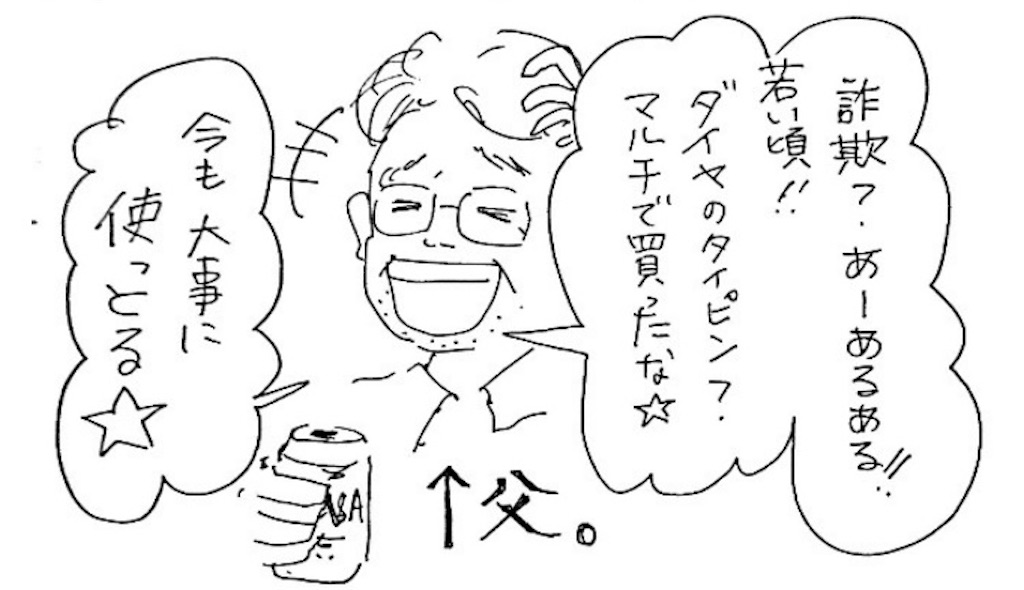 詐欺?.あーあるある!!
若い頃!!
ダイヤのタイピン?.
マルチで買ったな☆
今も大事に
使っとる☆
↑父。